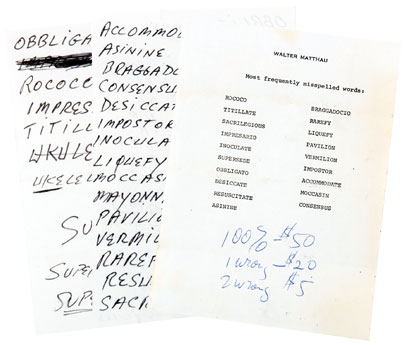 OBBLIGA
ROCOCC
IMPRES
TITILL
UKULE
UKELEL
SU
SUPER
SUP
ACCOMMO
ASININE
BRAGGADO
CONSENSU
DESICCAT
IMPOSTOR
INOCULA
LIQUEFY
MOCCASI
MAYONN
PAVILIO
VERMIL
RAREF
RESU
SACR
WALTER MATTHAU
Most frequently misspelled words:
ROCOCO
TITILLATE
SACRILEGIOUS
IMPRESARIO
INOCULATE
SUPERSEDE
OBBLIGATO
DESICCATE
RESUSCITATE
ASININE
BRAGGADOCIO
RAREFY
LIQUEFY
PAVILION
VERMILION
IMPOSTOR
ACCOMMODATE
MOCCASIN
CONSENSUS
100% $50
1 wrong $20
2 wrong $5